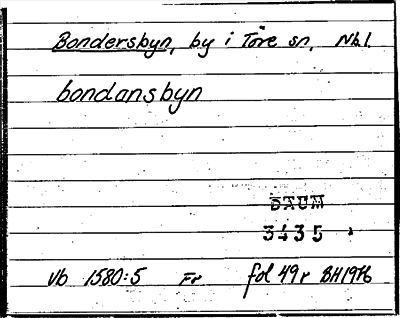 Bondersbyn, by i Töre sn, Nbl.
bondansbyn
DAUM
3435
Vb 1580:5 Fr fol 49r BH1976